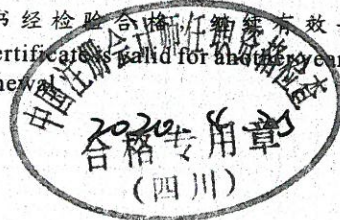 书经检验合格，继续有效一
ertificate is valid for another year
newal.
中国注册会计师任职资格检查
2020.4
合格专用章
（四川）